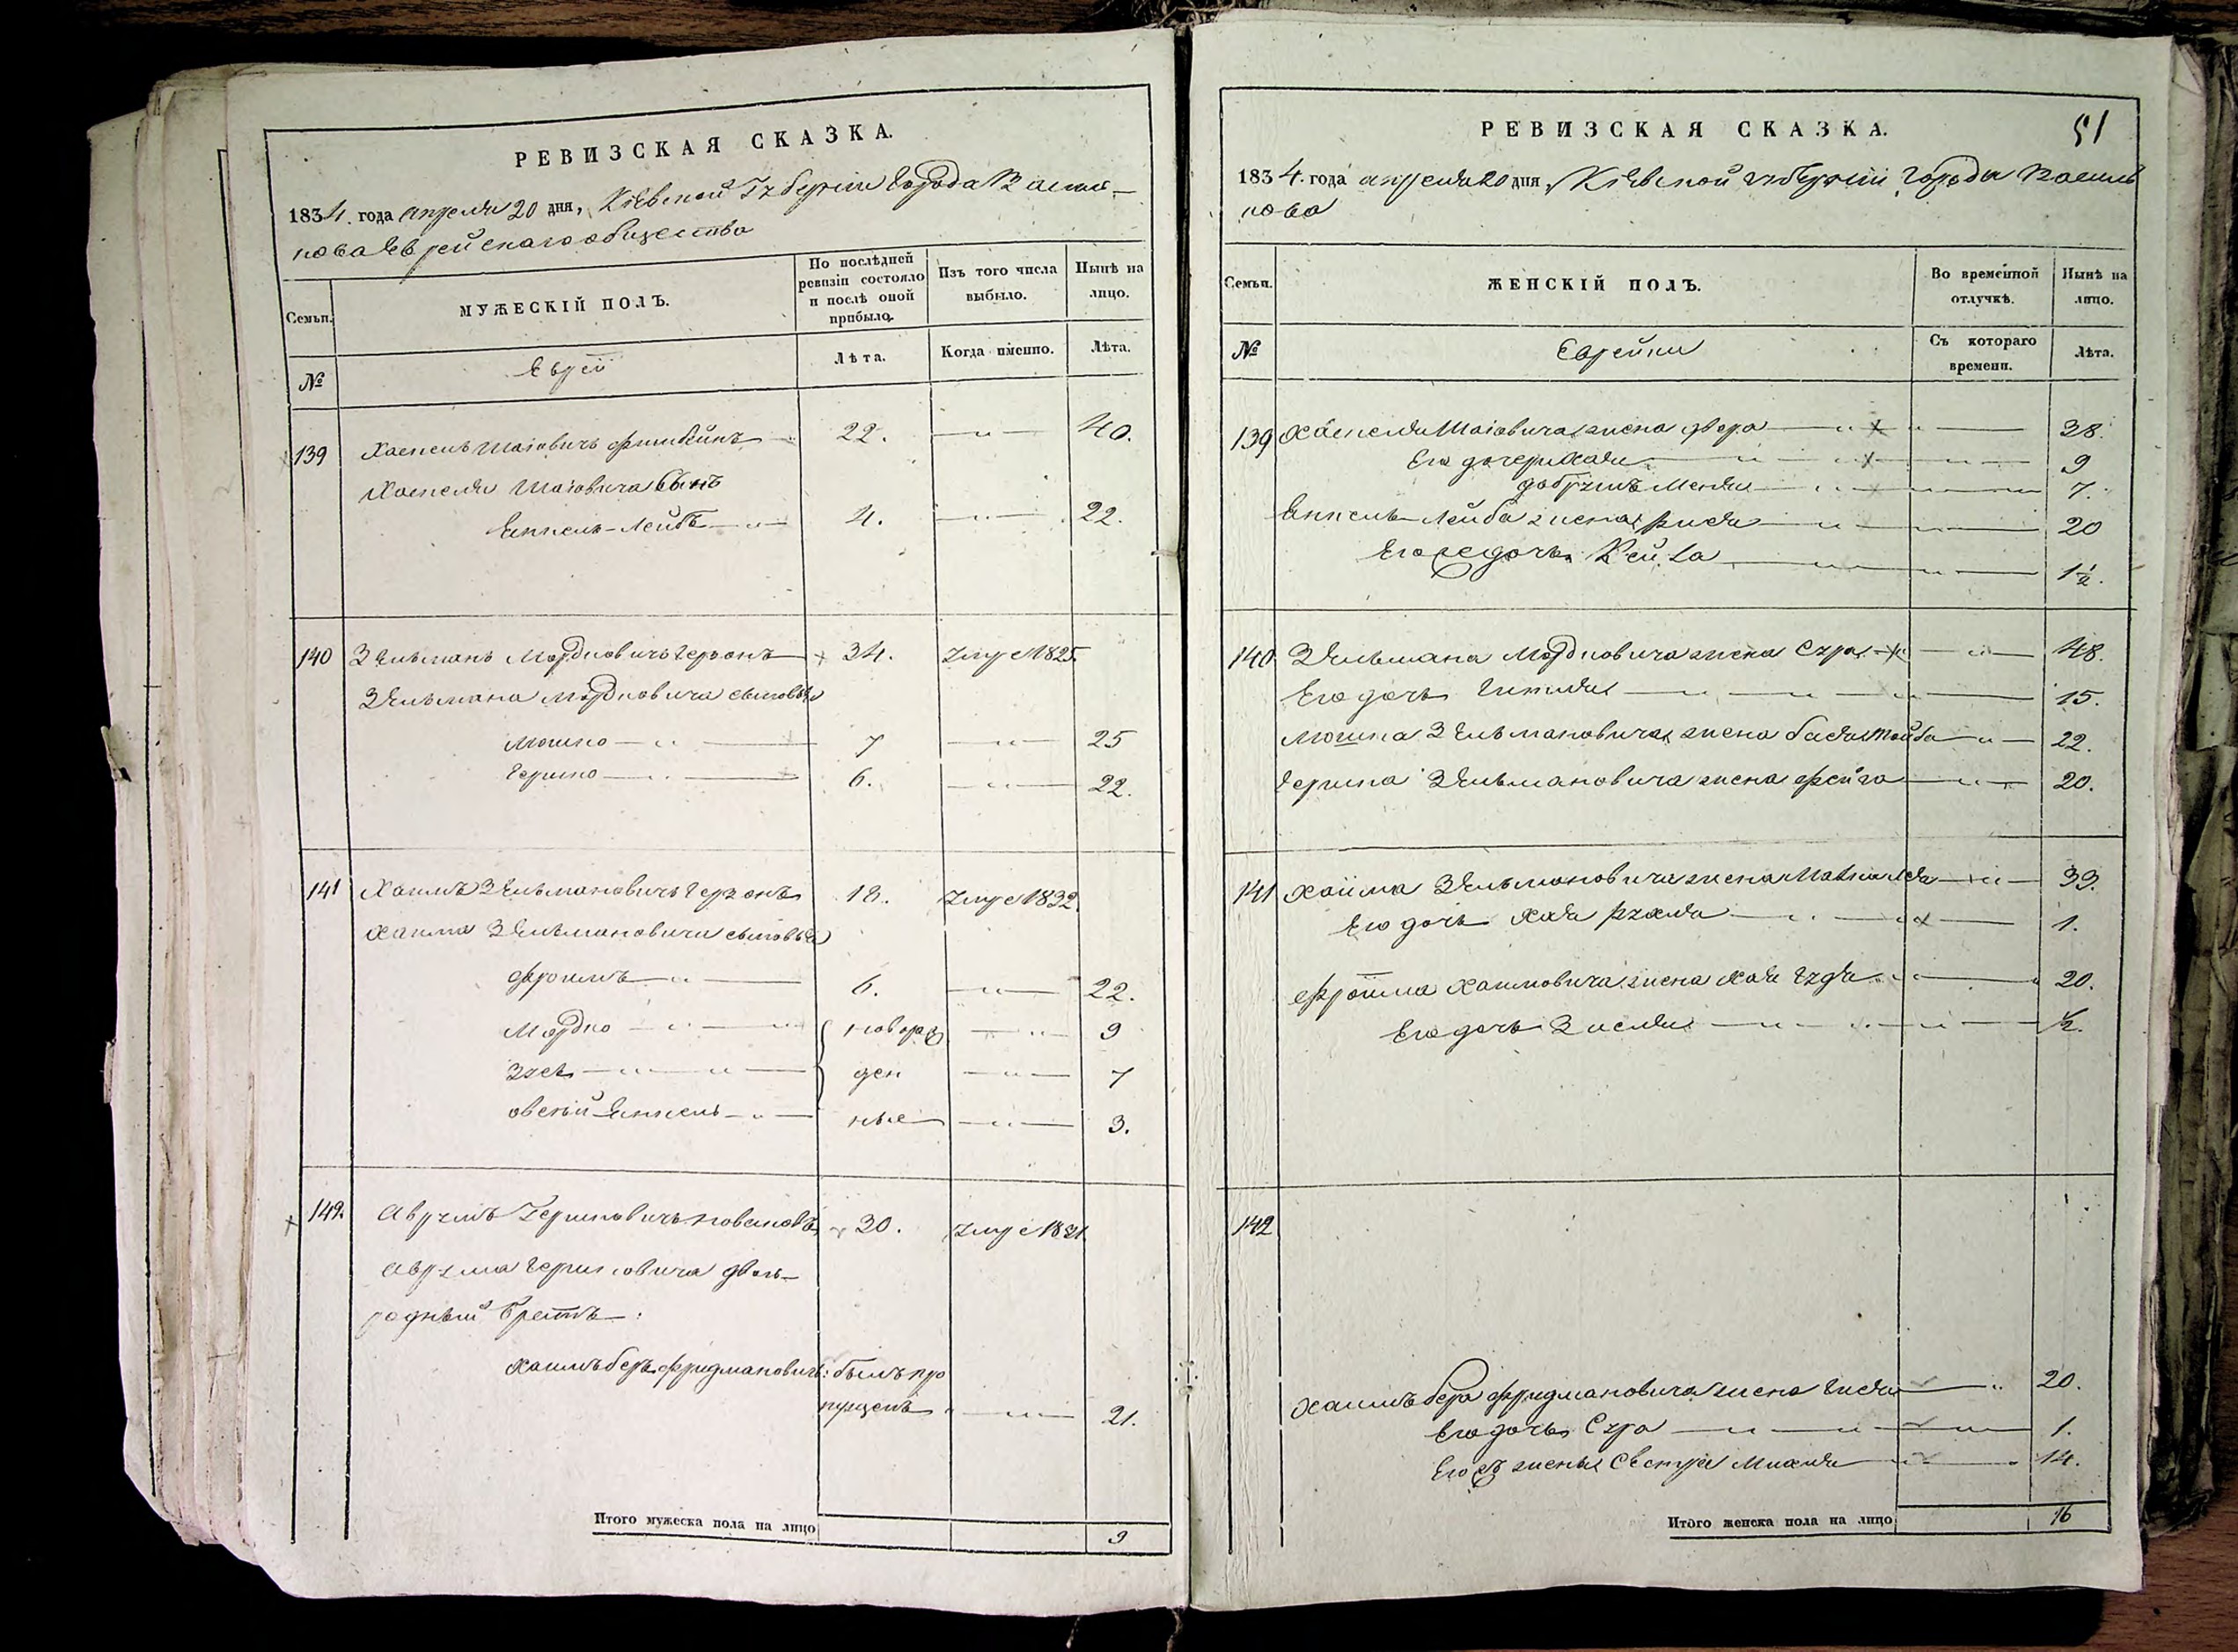 РЕВИЗСКАЯ СКАЗКА.
1834. года апреля 20 дня, Кіевской Губерніи Города Василь-
кова Еврейскаго общества
Семьи.
МУЖЕСКІЙ ПОЛЪ.
По послѣдней ревизіи состояло и послѣ оной прибыло.
Изъ того числа выбыло.
Нынѣ на лицо.
№
Еврей
Лѣта.
Когда именно.
Лѣта.
139 Хаскель Шаіовичъ 22. —"— 40.
Хаскеля Шаіовича сынъ
Янкель-Лейбъ —"— 4. —"— 22.
140 Зельманъ Мордковичъ Герзонъ 34. Умре 1825.
Зельмана Мордковича сыновья
Мошко —"— 7 —"— 25
Гершко —"— 6. —"— 22.
141 Хаимъ Зельмановичъ Герзонъ 18. Умре 1832.
Хаима Зельмановича сыновья
Фроимъ —"— 6. —"— 22.
Мордко —"— новорож —"— 9
Зусь —"— —"— ден —"— 7
Овсей-Янкель —"— ные —"— 3.
142. Аврумъ Гершковичъ 30. Умре 1831.
Аврума Гершковича двою-
родный братъ:
Хаимъ беръ Фридмановичъ: былъ про
пущенъ —"— 21.
Итого мужеска пола на лицо 9
51
РЕВИЗСКАЯ СКАЗКА.
1834. года апреля 20 дня, Кіевской губерніи Города Василь
кова
Семьи.
ЖЕНСКІЙ ПОЛЪ.
Во временной отлучкѣ.
Нынѣ на лицо.
№
Еврейки
Съ котораго времени.
Лѣта.
139 Хаскеля Шаіовича жена Двера —"— 38.
Его дочери Хая —"— 9
Добрушъ Меня —"— 7.
Янкель Лейба жена Рися —"— 20
Его же дочь Рейза —"— 1½.
140. Зельмана Мордковича жена Сура —"— 48.
Его дочь Гитля —"— 15.
Мошка Зельмановича жена Бася Тойба —"— 22.
Гершка Зельмановича жена Фейга —"— 20.
141 Хаима Зельмановича жена —"— 33.
Его дочь Хая Рухля —"— 1.
Фроима Хаимовича жена Хая Гудя —"— 20.
Его дочь Зисля —"— ½.
142
Хаимъ бера Фридмановича жена Гися —"— 20.
Его дочь Сура —"— 1.
Его жены сестра Михля —"— 14.
Итого женска пола на лицо 16